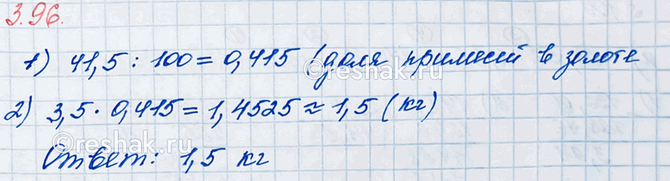 3.96.
1) 41,5 : 100 = 0,415 (доля примесей в золоте
2) 3,5 · 0,415 = 1,4525 ≈ 1,5 (кг)
Ответ: 1,5 кг
©reshak.ru
©reshak.ru